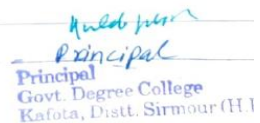 Principal
Principal
Govt. Degree College
Kafota, Distt. Sirmour (H.P